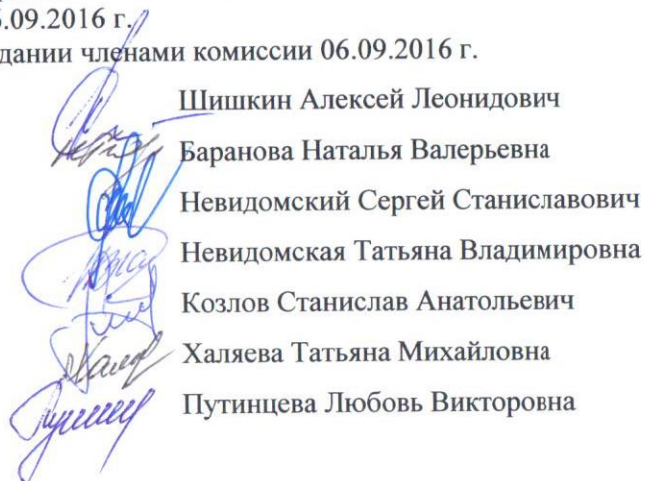 .09.2016 г.
дании членами комиссии 06.09.2016 г.
Шишкин Алексей Леонидович
Баранова Наталья Валерьевна
Невидомский Сергей Станиславович
Невидомская Татьяна Владимировна
Козлов Станислав Анатольевич
Халяева Татьяна Михайловна
Путинцева Любовь Викторовна